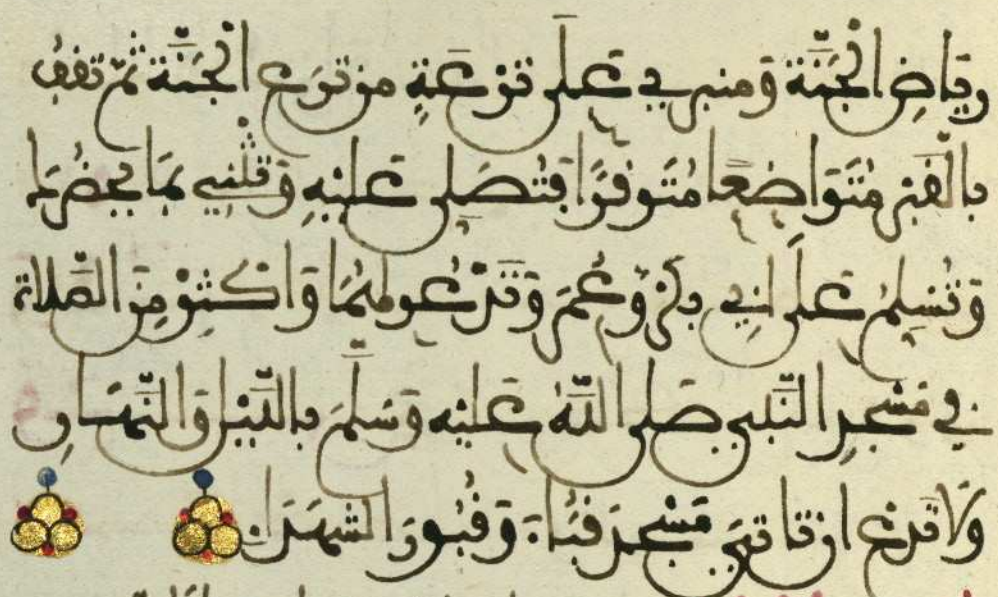 رياض الجنة ومنبري على ترعة من ترع الجنة ثم تقف
بالقبر متواضعا متوقرا فتصلي عليه وتثني بما يحضرك
وتسلم على أبي بكر وعمر وتدعو لهما وأكثر من الصلاة
في مسجد النبي صلى الله عليه وسلم بالليل والنهار
ولا تدع أن تاتي مسجد قباء وقبور الشهداء